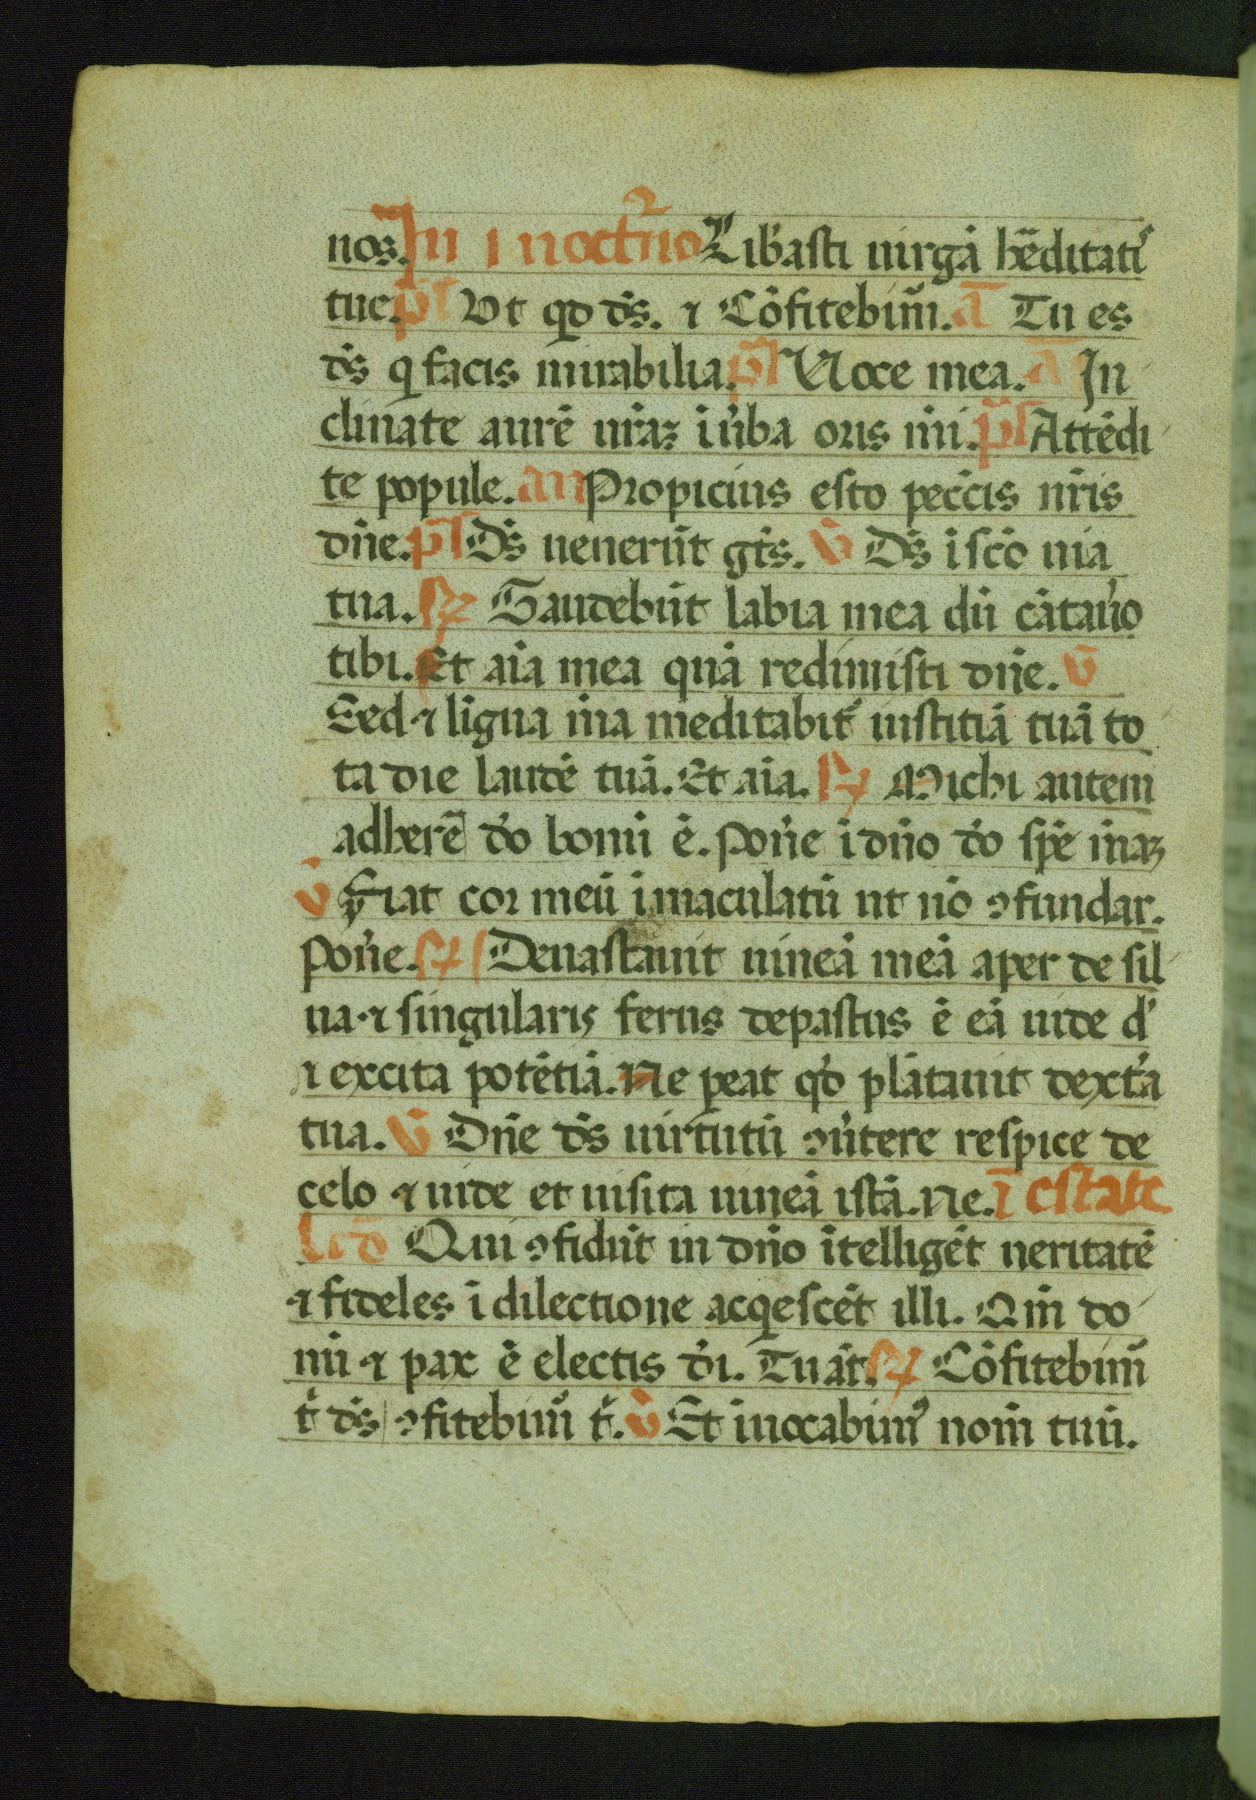 nos. In i noctr̄no Lib̓asti uirgā hēditati᷒
tue. p̄s Vt qd d̄s. ⁊ Cōfitebim᷒. ā Tu es
d̄s q facis mirabilia. p̄s Uoce mea. ā In
clinate aurē ur̄aꝫ ī u̓ba oris mi̅. p̄s Attēdi
te popule. an Propicius esto pecc̄is nr̄is
dn̄e. p̄s D̄s uenerūt gt̄s. v̄ D̄s ī sc̄o uia
tua. ℟ Gaudebūt labia mea dū cātau̓o
tibi. Et aīa mea quā redimisti dn̄e. v̄
Sed ⁊ līgua m̄a meditabit᷒ iustitiā tuā to
ta die laudē tuā. Et aīa. ℟ Michi autem
adherē d̓o bonū ē. Pon̓e ī dn̄o d̓o spē m̄aꝫ
v̄ Fiat cor meū īmaculatū ut nō ꝯfundar.
Pon̓e. ℟ Deuastauit uineā meā aper de sil
ua ⁊ singularis ferus depastus ē eā uide d̓
⁊ excita potētiā. Ne ꝑeat qd̓ plātauit dext̓a
tua. v̄ Dn̄e d̄s uirtutū ꝯu̓tere respice de
celo ⁊ uide et uisita uineā istā. Ne. ī estate
lc̄o Qui ꝯfidūt in dn̄o ītelligēt ueritatē
⁊ fideles ī dilectione acqescēt illi. Qm̄ do
nū ⁊ pax ē electis d̓i. Tu āt. ℟ Cōfitebim᷒
t̓ d̄s ꝯfitebim᷒ t̓. v̄ Et īuocabim᷒ nom̄ tuū.